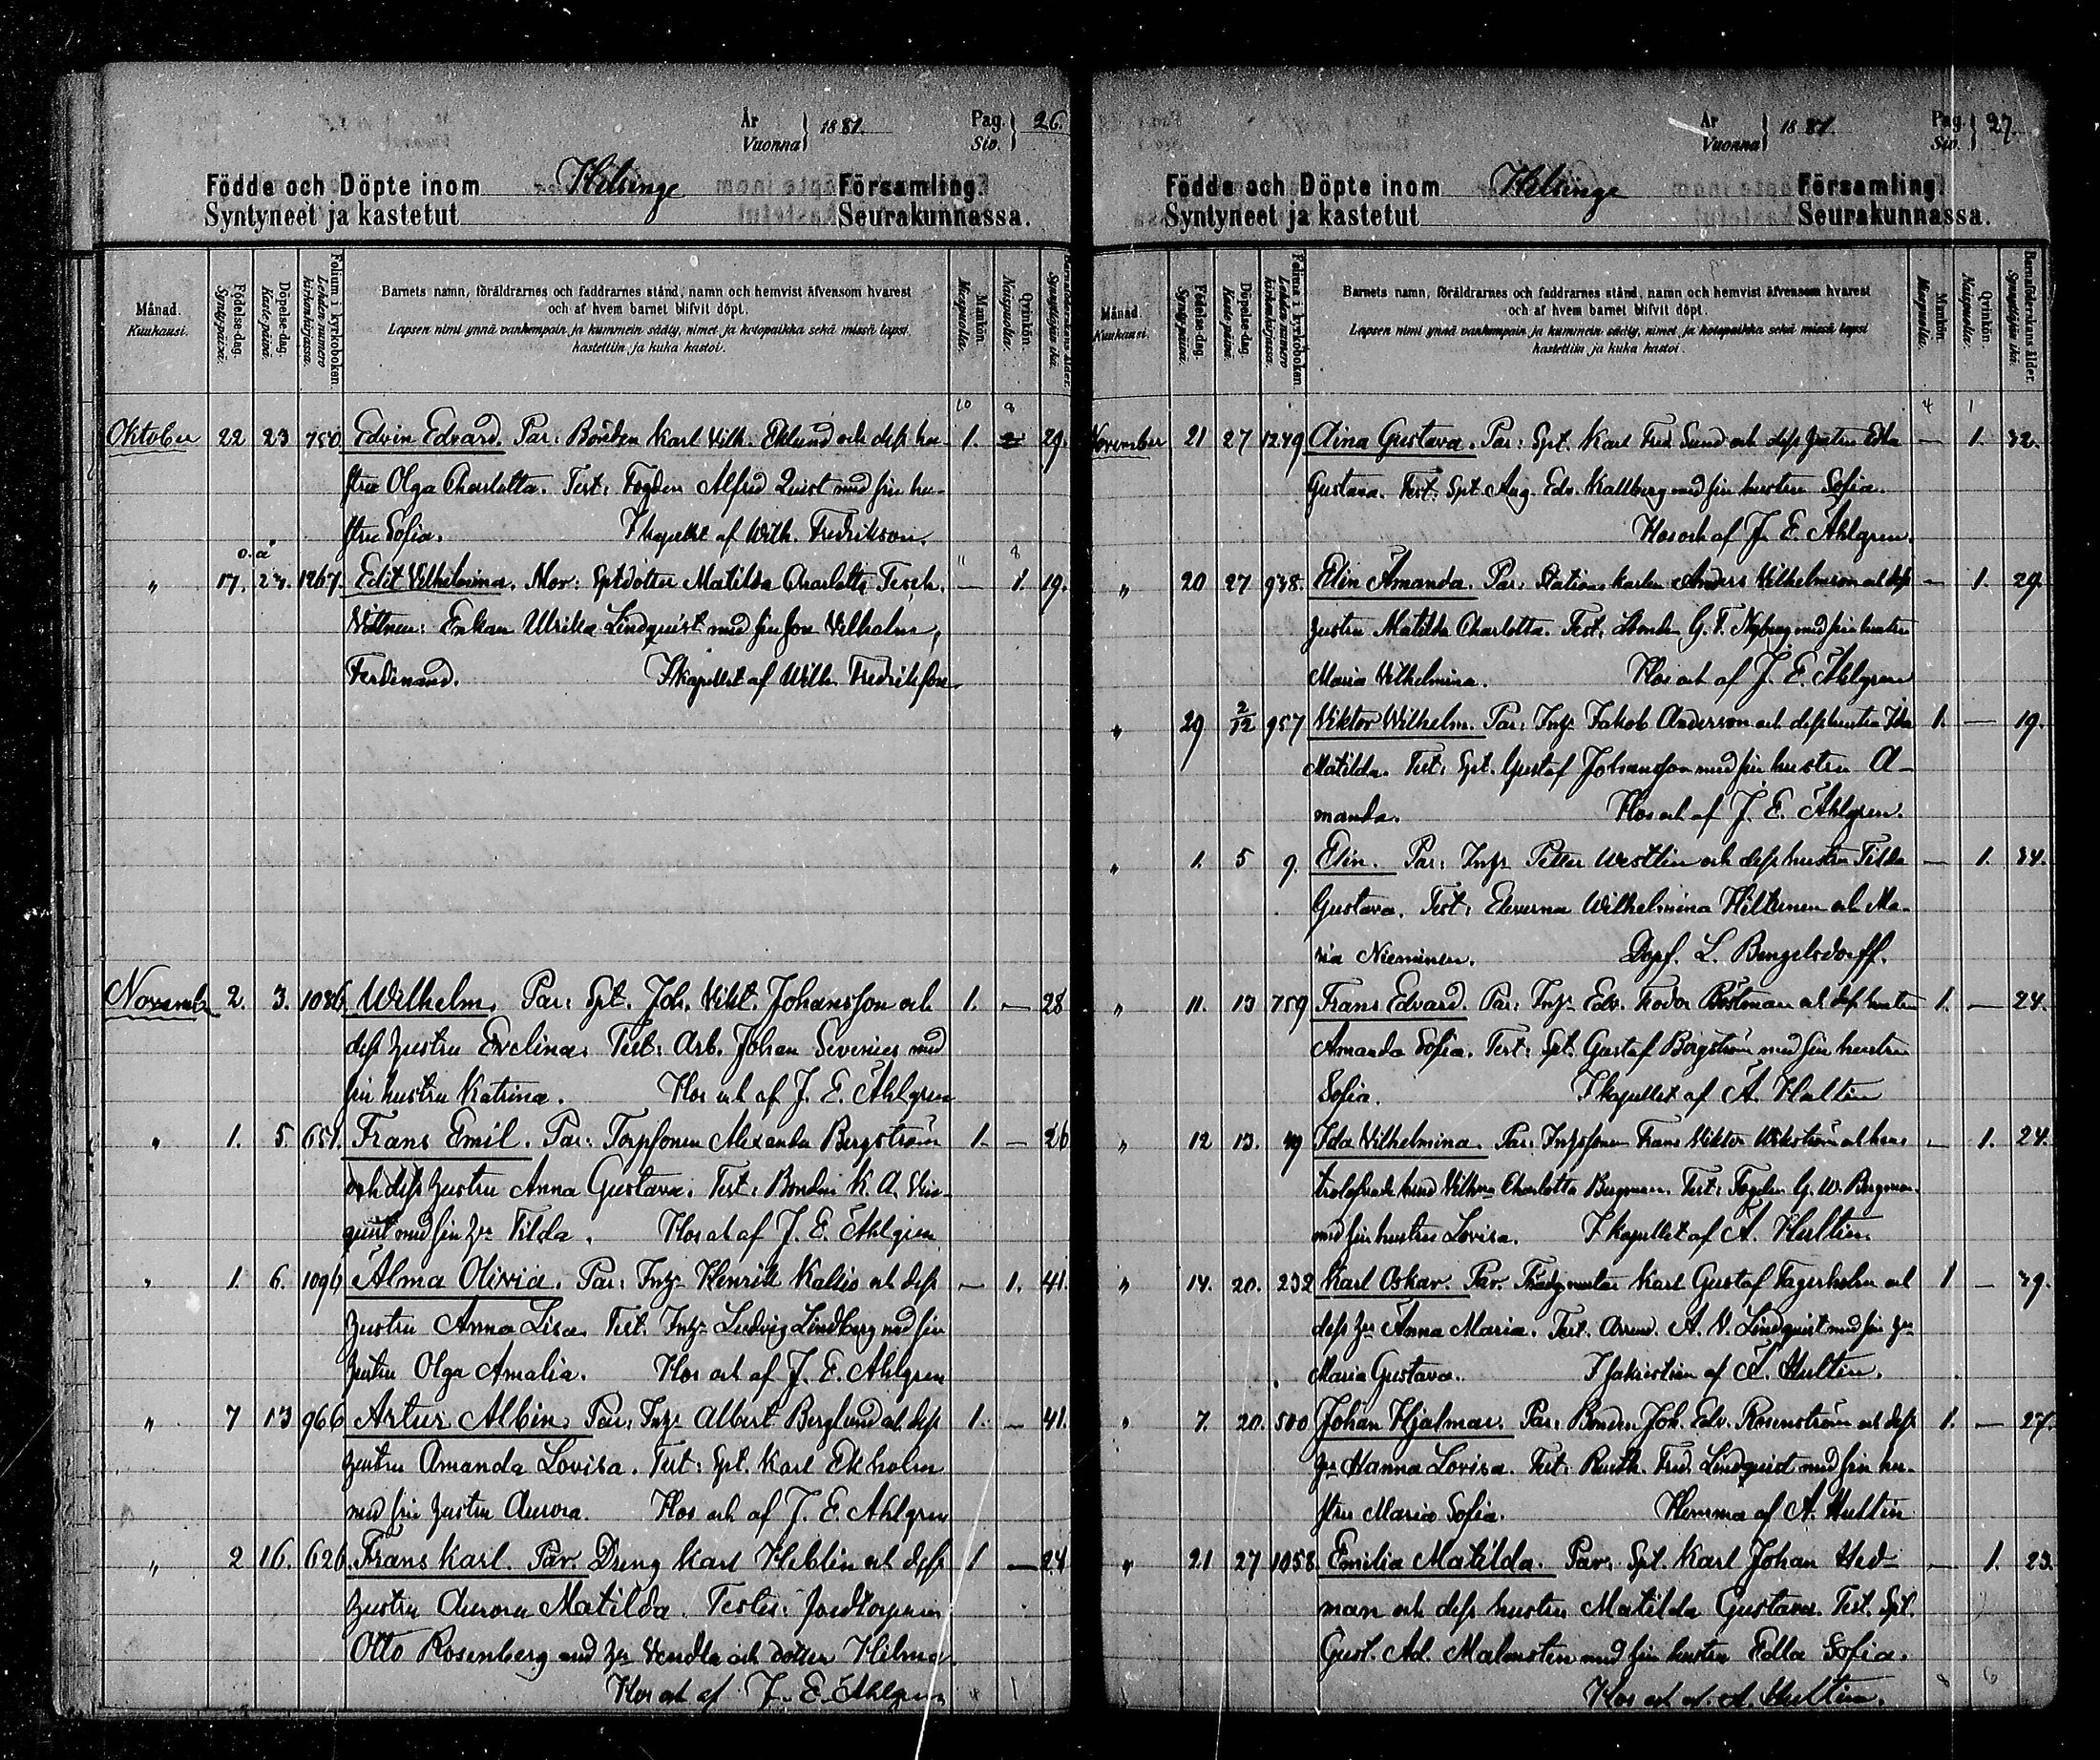 År
Vuonna
1881.
Pag.
Siv.
26.
Födde och Döpte inom Helsinge Församling
Syntyneet ja kastetut Seurakunnassa.
Månad.
Kuukausi.
Födelse-dag.
Syntypäivä.
Döpelse-dag.
Kaste-päivä.
Folium i kyrkoboken.
Lehden numero kirkonkirjassa.
Barnets namn, föräldrarnes och faddrarnes stånd, namn och hemvist äfvensom hvarest
och af hvem barnet blifvit döpt.
Lapsen nimi ynnä vanhempain ja kummein sääty, nimet ja kotopaikka sekä missä lapsi
kastettiin ja kuka kastoi.
Mankön.
Miespuolia.
Qvinkön.
Naispuolia.
Barnaföderskans ålder.
Synnyttäjän ikä.
10 9
Oktober 22 23 750 Edvin Edvard. Par: Bonden Karl Vilh. Eklund och dess hu- 1. 29.
stru Olga Charlotta. Test: Fogden Alfred Quist med sin hu-
stru Sofia. I kapellet af Wilh. Fredrikson.
o. ä 11 8
" 17. 23. 1267. Edit Vilhelmina. Mor: Sptdotter Matilda Charlotta Tesch. — 1. 19.
Vittnen: Enkan Ulrika Lindquist med sin son Vilhelm,
Ferdinand. I kapellet af Wilh. Fredriksson
November 2. 3. 1086 Wilhelm. Par: Spt. Joh. Vikt. Johansson och 1. — 28
dess hustru Evelina. Test: Arb. Johan Severius med
sin hustru Katrina. Hos och af J. E. Ahlgren
" 1. 5. 651. Frans Emil. Par: Torpsonen Alexander Bergström 1. — 26
och dess hustru Anna Gustava. Test: Bonden K. A.
quist med sin h:u Tilda. Hos och af J. E. Ahlgren
" 1. 6. 1096 Alma Olivia. Par: Inhy. Henrik Kallio och dess — 1. 41.
hustru Anna Lisa. Test. Inhy. Ludvig Lindberg med sin
hustru Olga Amalia. Hos och af J. E. Ahlgren
" 7 13 966 Artur Albin. Par: Inhy. Albert Berglund och dess 1. — 41.
hustru Amanda Lovisa. Test: Spt. Karl Ekholm
med sin hustru Aurora. Hos och af J. E. Ahlgren
" 2 16. 626 Frans Karl. Par. Dreng Karl Heblin och dess 1 — 24
hustru Aurora Matilda. Testes: Jordtorparen
Otto Rosenberg med h:u Vendla och dotter Hilma.
Hos och af J. E. Ahlgren
År
Vuonna
1881.
Pag.
Siv.
27.
Födde och Döpte inom Helsinge Församling
Syntyneet ja kastetut Seurakunnassa.
Månad
Kuukausi.
Födelse-dag.
Syntypäivä.
Döpelse-dag.
Kaste-päivä.
Folium i kyrkoboken.
Lehden numero kirkonkirjassa.
Barnets namn, föräldrarnes och faddrarnes stånd, namn och hemvist äfvensom hvarest
och af hvem barnet blifvit döpt.
Lapsen nimi ynnä vanhempain ja kummein sääty, nimet ja kotopaikka sekä missä lapsi
kastettiin ja kuka kastoi.
Mankön.
Miespuolia.
Qvinkön.
Naispuolia.
Barnaföderskans ålder.
Synnyttäjän ikä.
4 1
November 21 27 1249 Aina Gustava. Par: Spt. Karl Fred. Sund och dess hustru Edla — 1. 32.
Gustava. Test: Spt. Aug. Edv. Kallberg med sin hustru Sofia.
Hos och af J. E. Ahlgren.
" 20 27 938. Elin Amanda. Par: Stationskarlen Anders Vilhelmson och dess — 1. 29.
hustru Matilda Charlotta. Test: Bonden G. F. Nyberg med sin hustru
Maria Vilhelmina. Hos och af J. E. Ahlgren
" 29 2/12 957 Viktor Wilhelm. Par: Inhy. Jakob Anderson och dess hustru Ida 1. — 19.
Matilda. Test: Spt. Gustaf Johansson med sin hustru A-
manda. Hos och af J. E. Ahlgren.
" 1. 5 9. Elin. Par: Inhy. Petter Westlin och dess hustru Tilda — 1. 34.
Gustava. Test: Eleverna Wilhelmina Hiltunen och Ma-
ria Nieminen. Dopf. L. Bengelsdorff.
" 11. 13 759 Frans Edvard. Par: Inhy. Edv. Fodor Böstman och dess hustru 1. — 24.
Amanda Sofia. Test: Spt. Gustaf Borgström med sin hustru
Sofia. I kapellet af A. Hultin
" 12 13. 49 Ida Vilhelmina. Par: Inhyssonen Frans Viktor Wikström och hans — 1. 24.
trolofvade Charlotta Bergman. Test: Fogden G. W. Bergman
med sin hustru Lovisa. I kapellet af A. Hultin.
" 14. 20. 232 Karl Oskar. Par. Trädgmästar Karl Gustaf Fagerholm och 1 — 39.
dess h:u Anna Maria. Test. Arrend. A. V. Lindquist med sin h:u
Maria Gustava. I sakristian af A. Hultin.
" 7. 20. 500 Johan Hjalmar. Par: Bonden Joh. Edv. Rosenström och dess 1. — 27.
h:u Hanna Lovisa. Test: Rusth. Fred. Lindquist med sin hu-
stru Maria Sofia. Hemma af A. Hultin
" 21 27 1058 Emilia Matilda. Par: Spt. Karl Johan Hed- — 1. 23.
man och dess hustru Matilda Gustava. Test. Spt.
Gust. Ad. Malmsten med sin hustru Edla Sofia.
Hos och af A. Hultin.
8 6